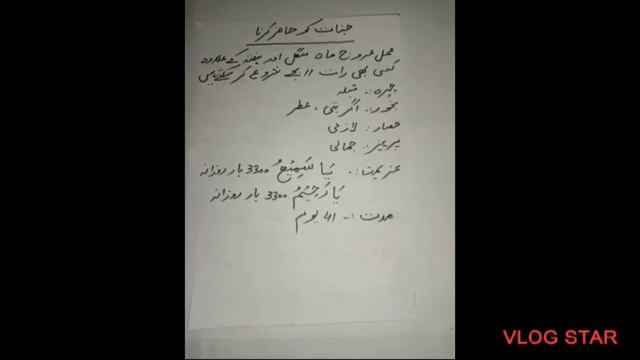 جنات کو حاضر کرنا
عمل عروج ماہ منگل اور ہفتہ کے علاوہ
کسی بھی رات 11 بجے شروع کر سکتے ہیں
چہرہ :. قبلہ
بخور :. اگر بتی ، عطر
حصار : لازمی
پرہیز : جمالی
عزیمت :. یَا سَمِیْعُ 3300 بار روزانہ
یَا رَحِیْمُ 3300 بار روزانہ
مدت :- 41 یوم
VLOG STAR